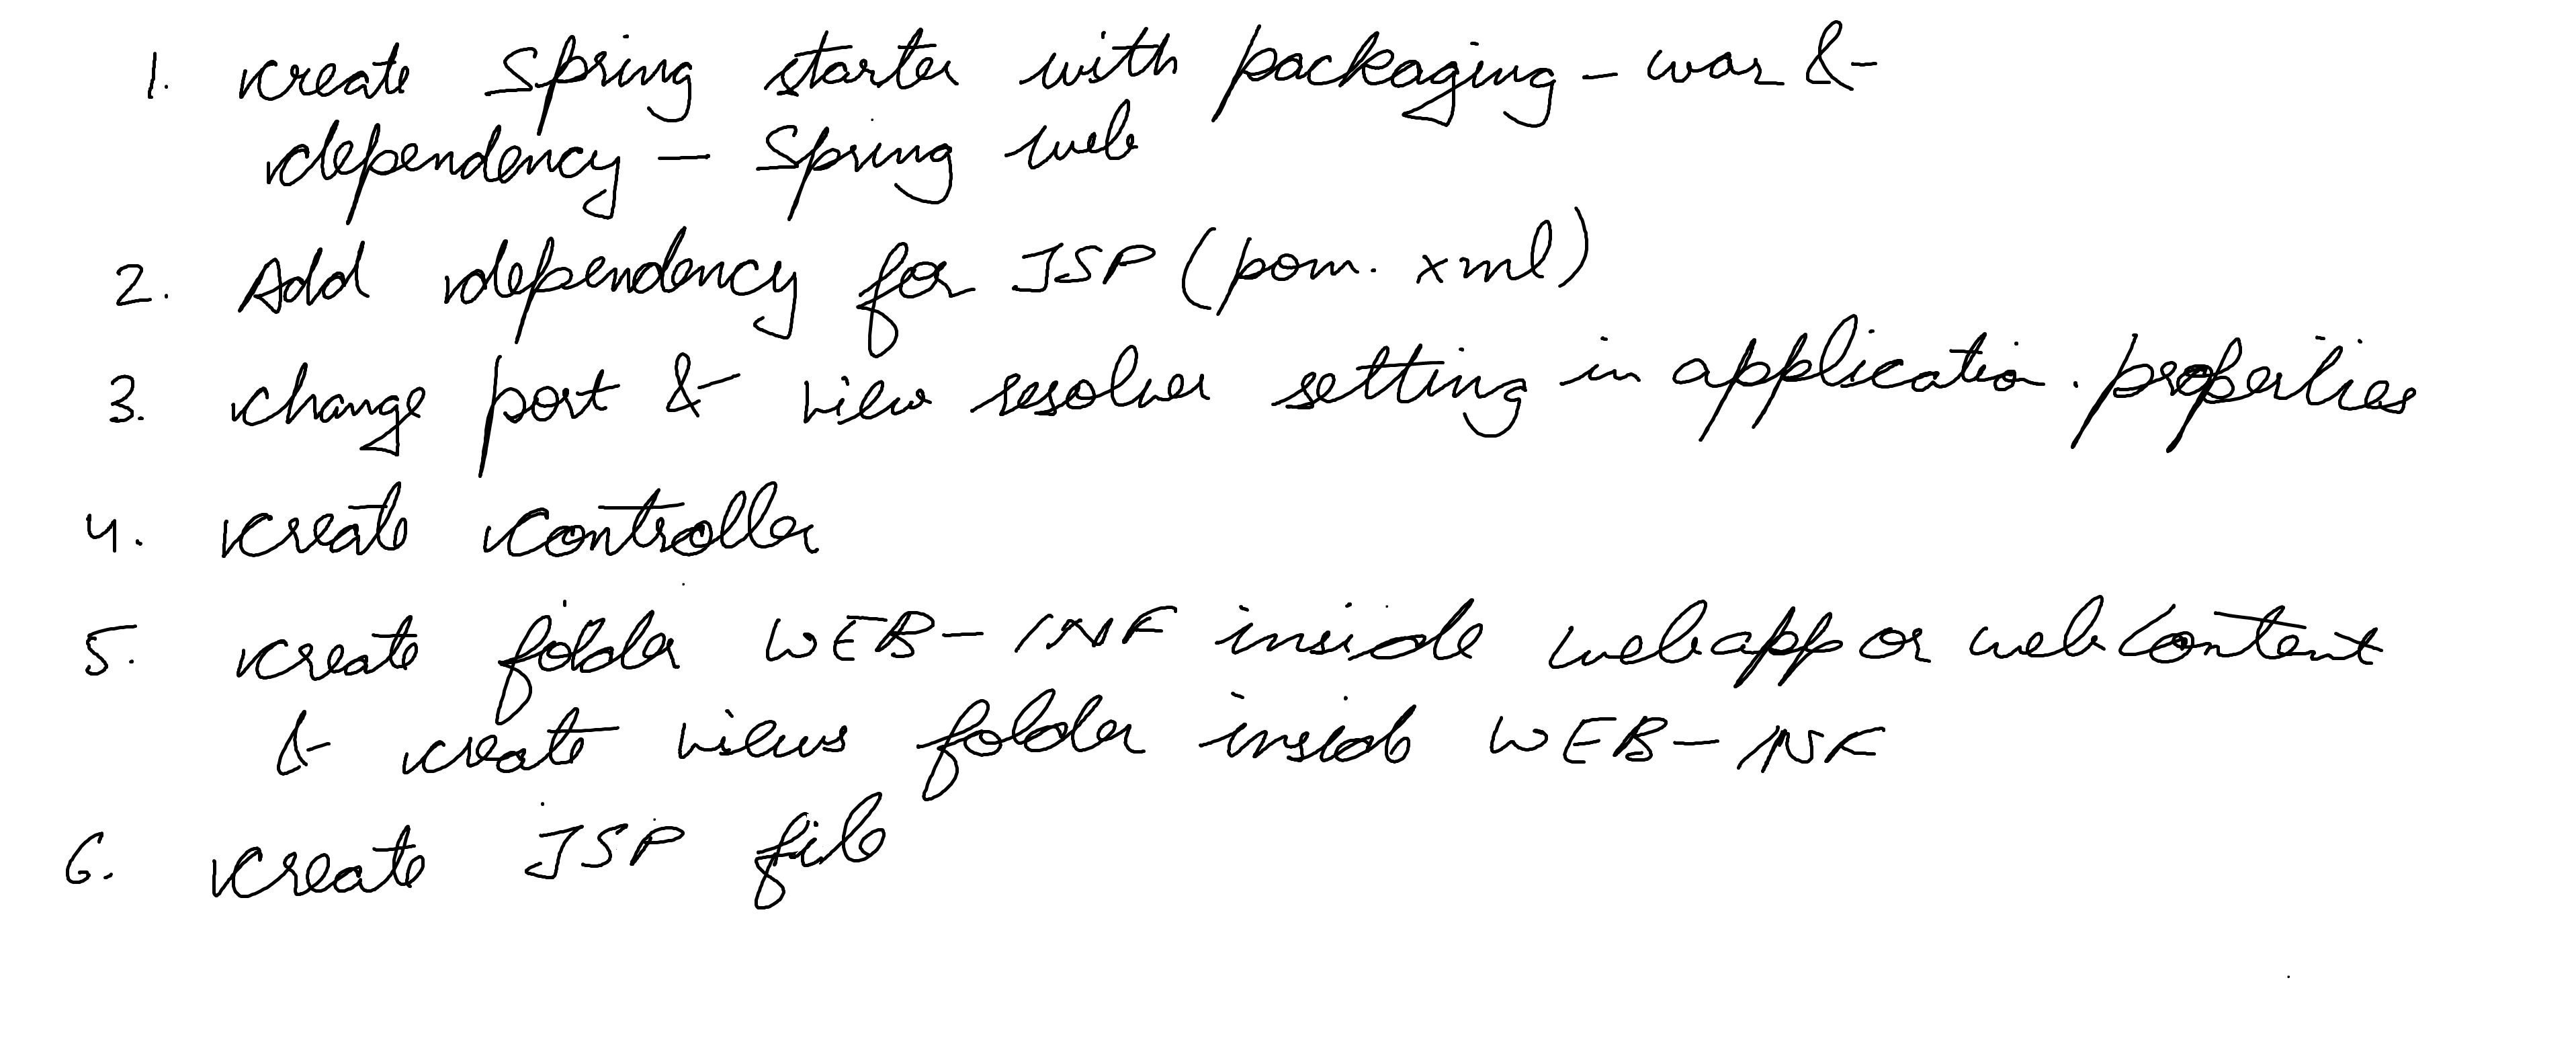 1. create Spring starter with packaging - war &
dependency - Spring web
2. Add dependency for JSP (pom.xml)
3. change port & view resolver setting in application.properties
4. create controller
5. create folder WEB-INF inside webapp or webcontent
& create views folder inside WEB-INF
6. create JSP file